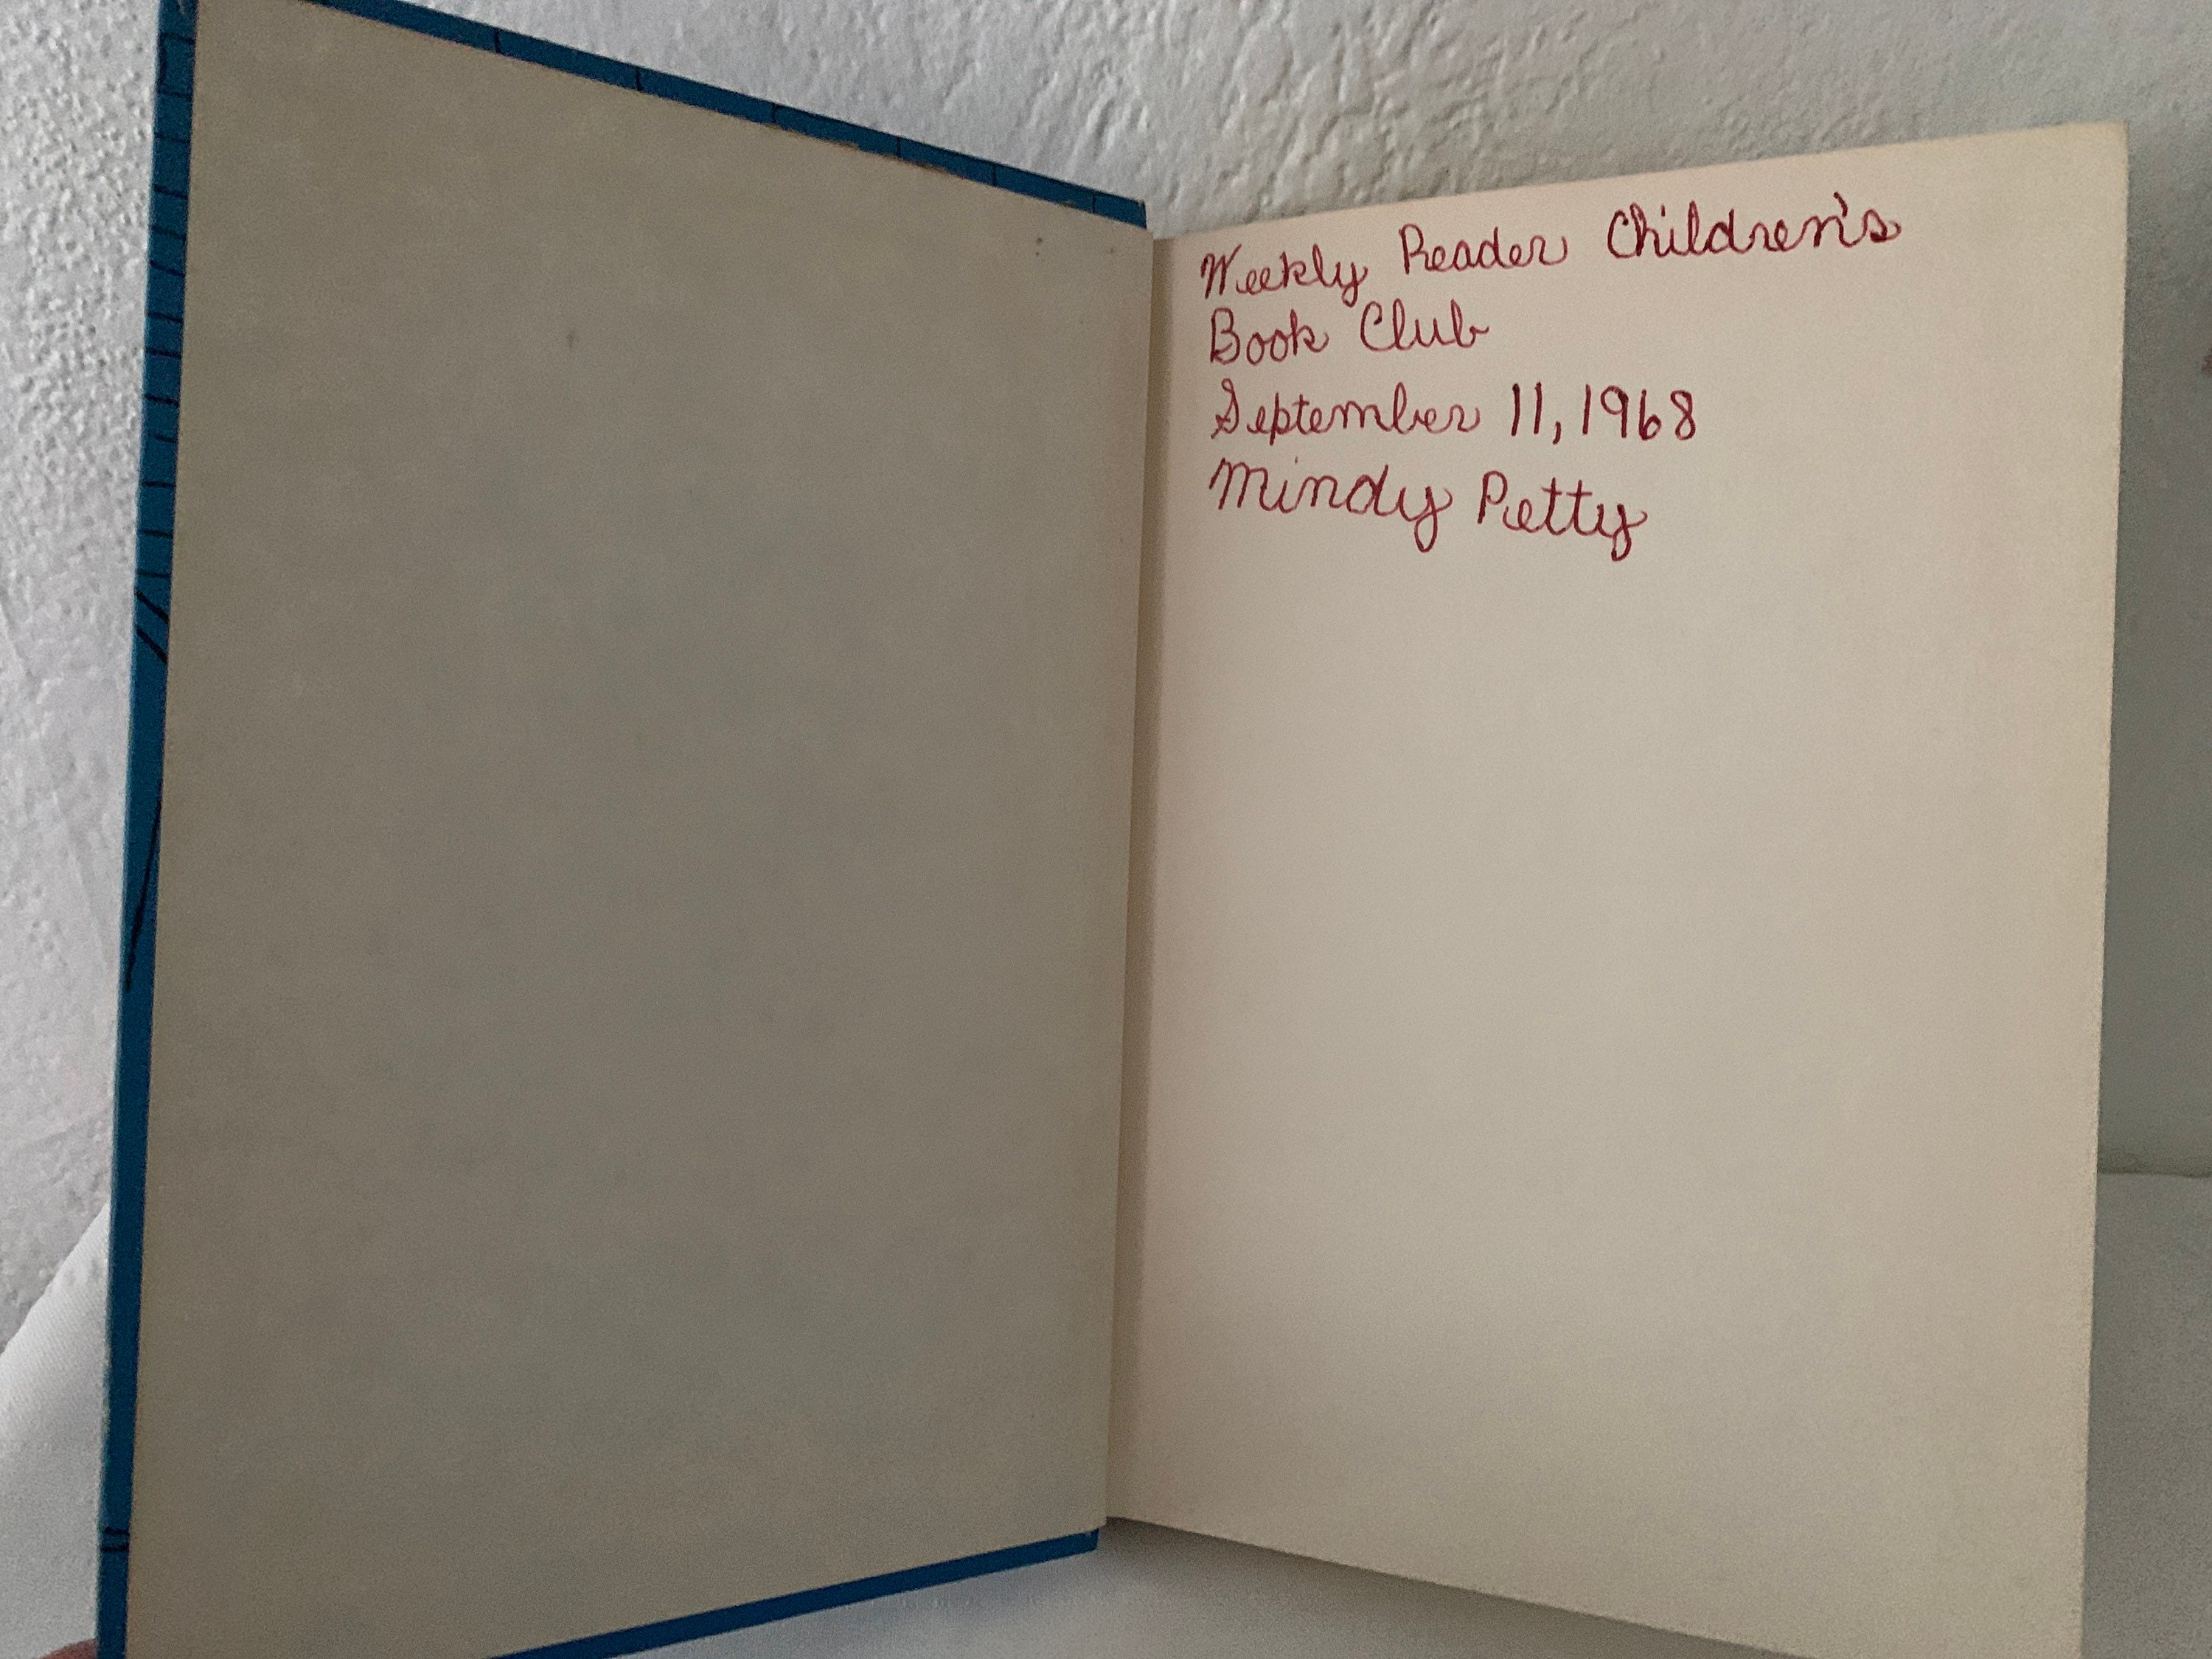 Weekly Reader Children's
Book Club
September 11, 1968
Mindy Petty